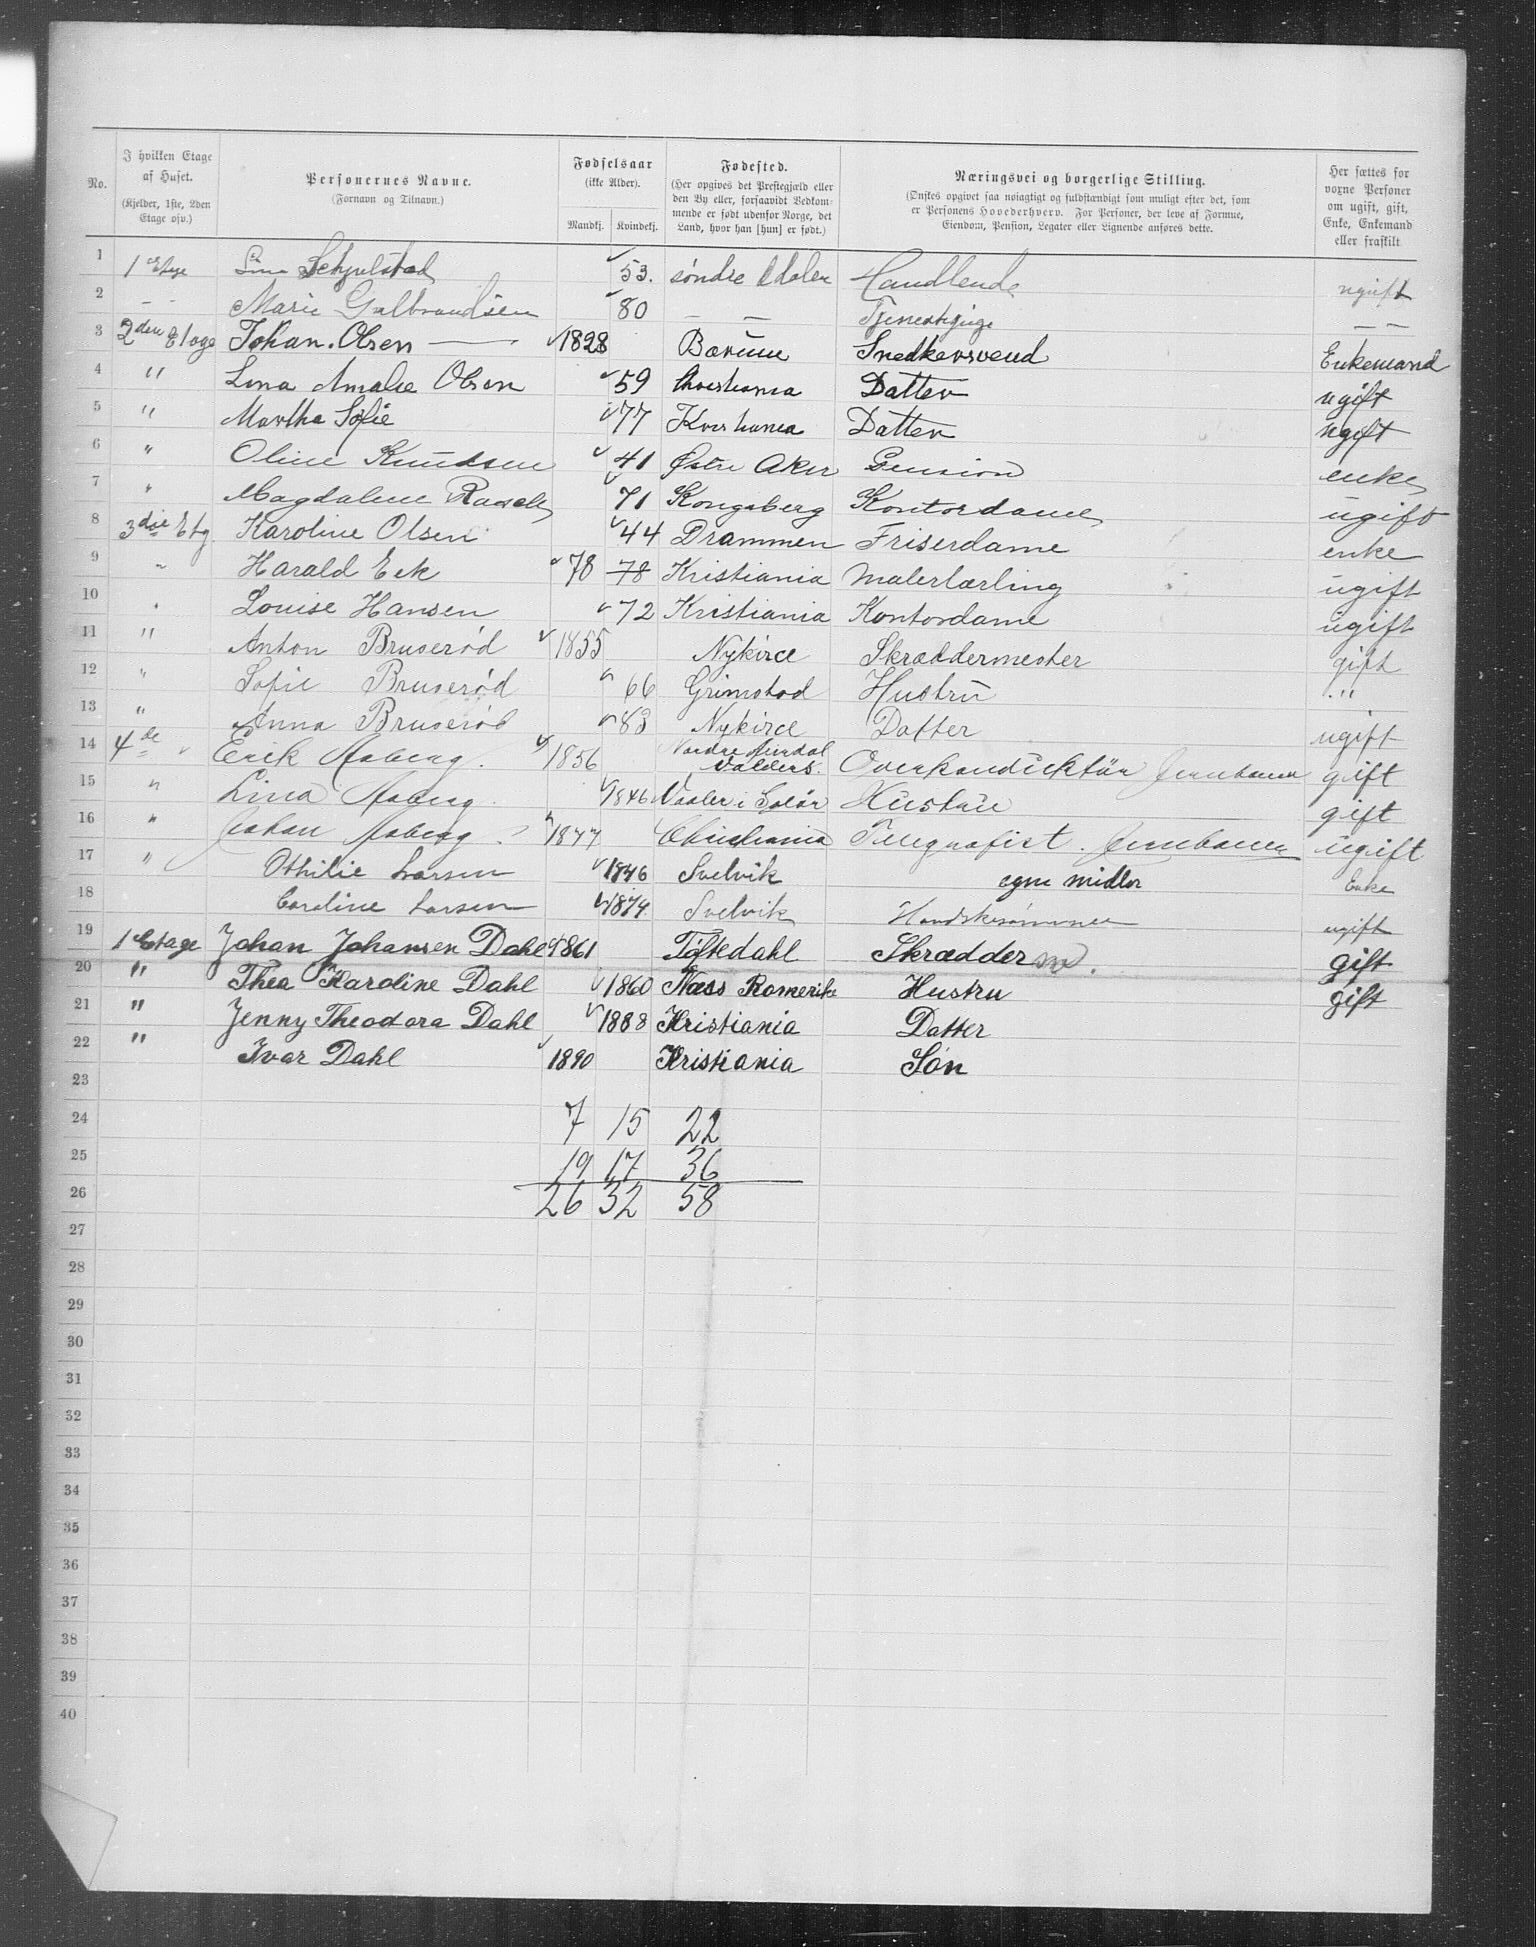 No. | I hvilken Etage af Huset. (Kjelder, 1ste, 2den Etage osv.) | Personernes Navne. (Fornavn og Tilnavn.) | Fødselsaar (ikke Alder). Mandkj. Kvindekj. | Fødested. (Her opgives det Prestegjæld eller den By eller, forsaavidt Vedkommende er født udenfor Norge, det Land, hvor han [hun] er født.) | Næringsvei og borgerlige Stilling. (Ønskes opgivet saa nøiagtigt og fuldstændigt som muligt efter det, som er Personens Hovederhverv. For Personer, der leve af Formue, Eiendom, Pension, Legater eller Lignende anføres dette.) | Her sættes for voxne Personer om ugift, gift, Enke, Enkemand eller fraskilt.
1 1 Etge Schjulstad 53. søndre Odalen Handlende ugift
2 - - Marie Gulbrandsen 80 — — Tjenestepige — —
3 2den Etage Johan Olsen 1828 Bærum Snedkersvend Enkemand
4 " Lina Amalie Olsen 59 Christiania Datter ugift
5 " Martha Sofie 77 Kristiania Datter ugift
6 " Oline Knudsen 41 Østre Aker Pension enke
7 " Magdalene 71 Kongsberg Kontordame ugift
8 3die Etg. Karoline Olsen 44 Drammen Friserdame enke
9 " Harald Eek 78 78 Kristiania Malerlærling ugift
10 " Louise Hansen 72 Kristiania Kontordame ugift
11 " Anton Bruserød 1855 Nykirce Skræddermester gift
12 " Sofie Bruserød 66 Grimstad Hustru "
13 " Anna Bruserød 83 Nykirce Datter ugift
14 4de Erik Aaberg. 1856 Nordre Aurdal Valders. Overkonduktør Jernbanen gift
15 " Lina Aaberg 1846 Vaaler i Solør Hustru gift
16 " Johan Aaberg 1877 Christiania Telegrafist. Jernbanen ugift
17 " Othilie Larsen 1846 Svelvik egne midler Enke
18 Caroline Larsen 1874 Svelvik Handskesømmer ugift
19 1 Etage Johan Johansen Dahl 1861 Tistedahl Skrædder sv. gift
20 " Thea Karoline Dahl 1860 Næss Romerike Hustru gift
21 " Jenny Theodora Dahl 1888 Kristiania Datter
22 " Ivar Dahl 1890 Kristiania Søn
23
24 7 15 22
25 19 17 36
26 26 32 58
27
28
29
30
31
32
33
34
35
36
37
38
39
40